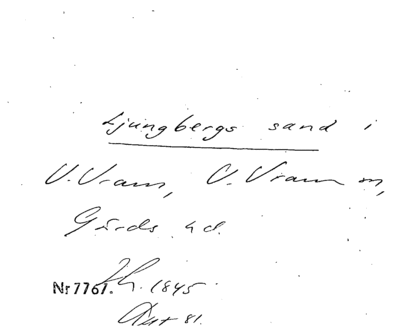 Ljungbergs sand i
V. Vram, V. Vram sn,
Gärds hd.
Nr 7767. Th. 1845
Avt 81.